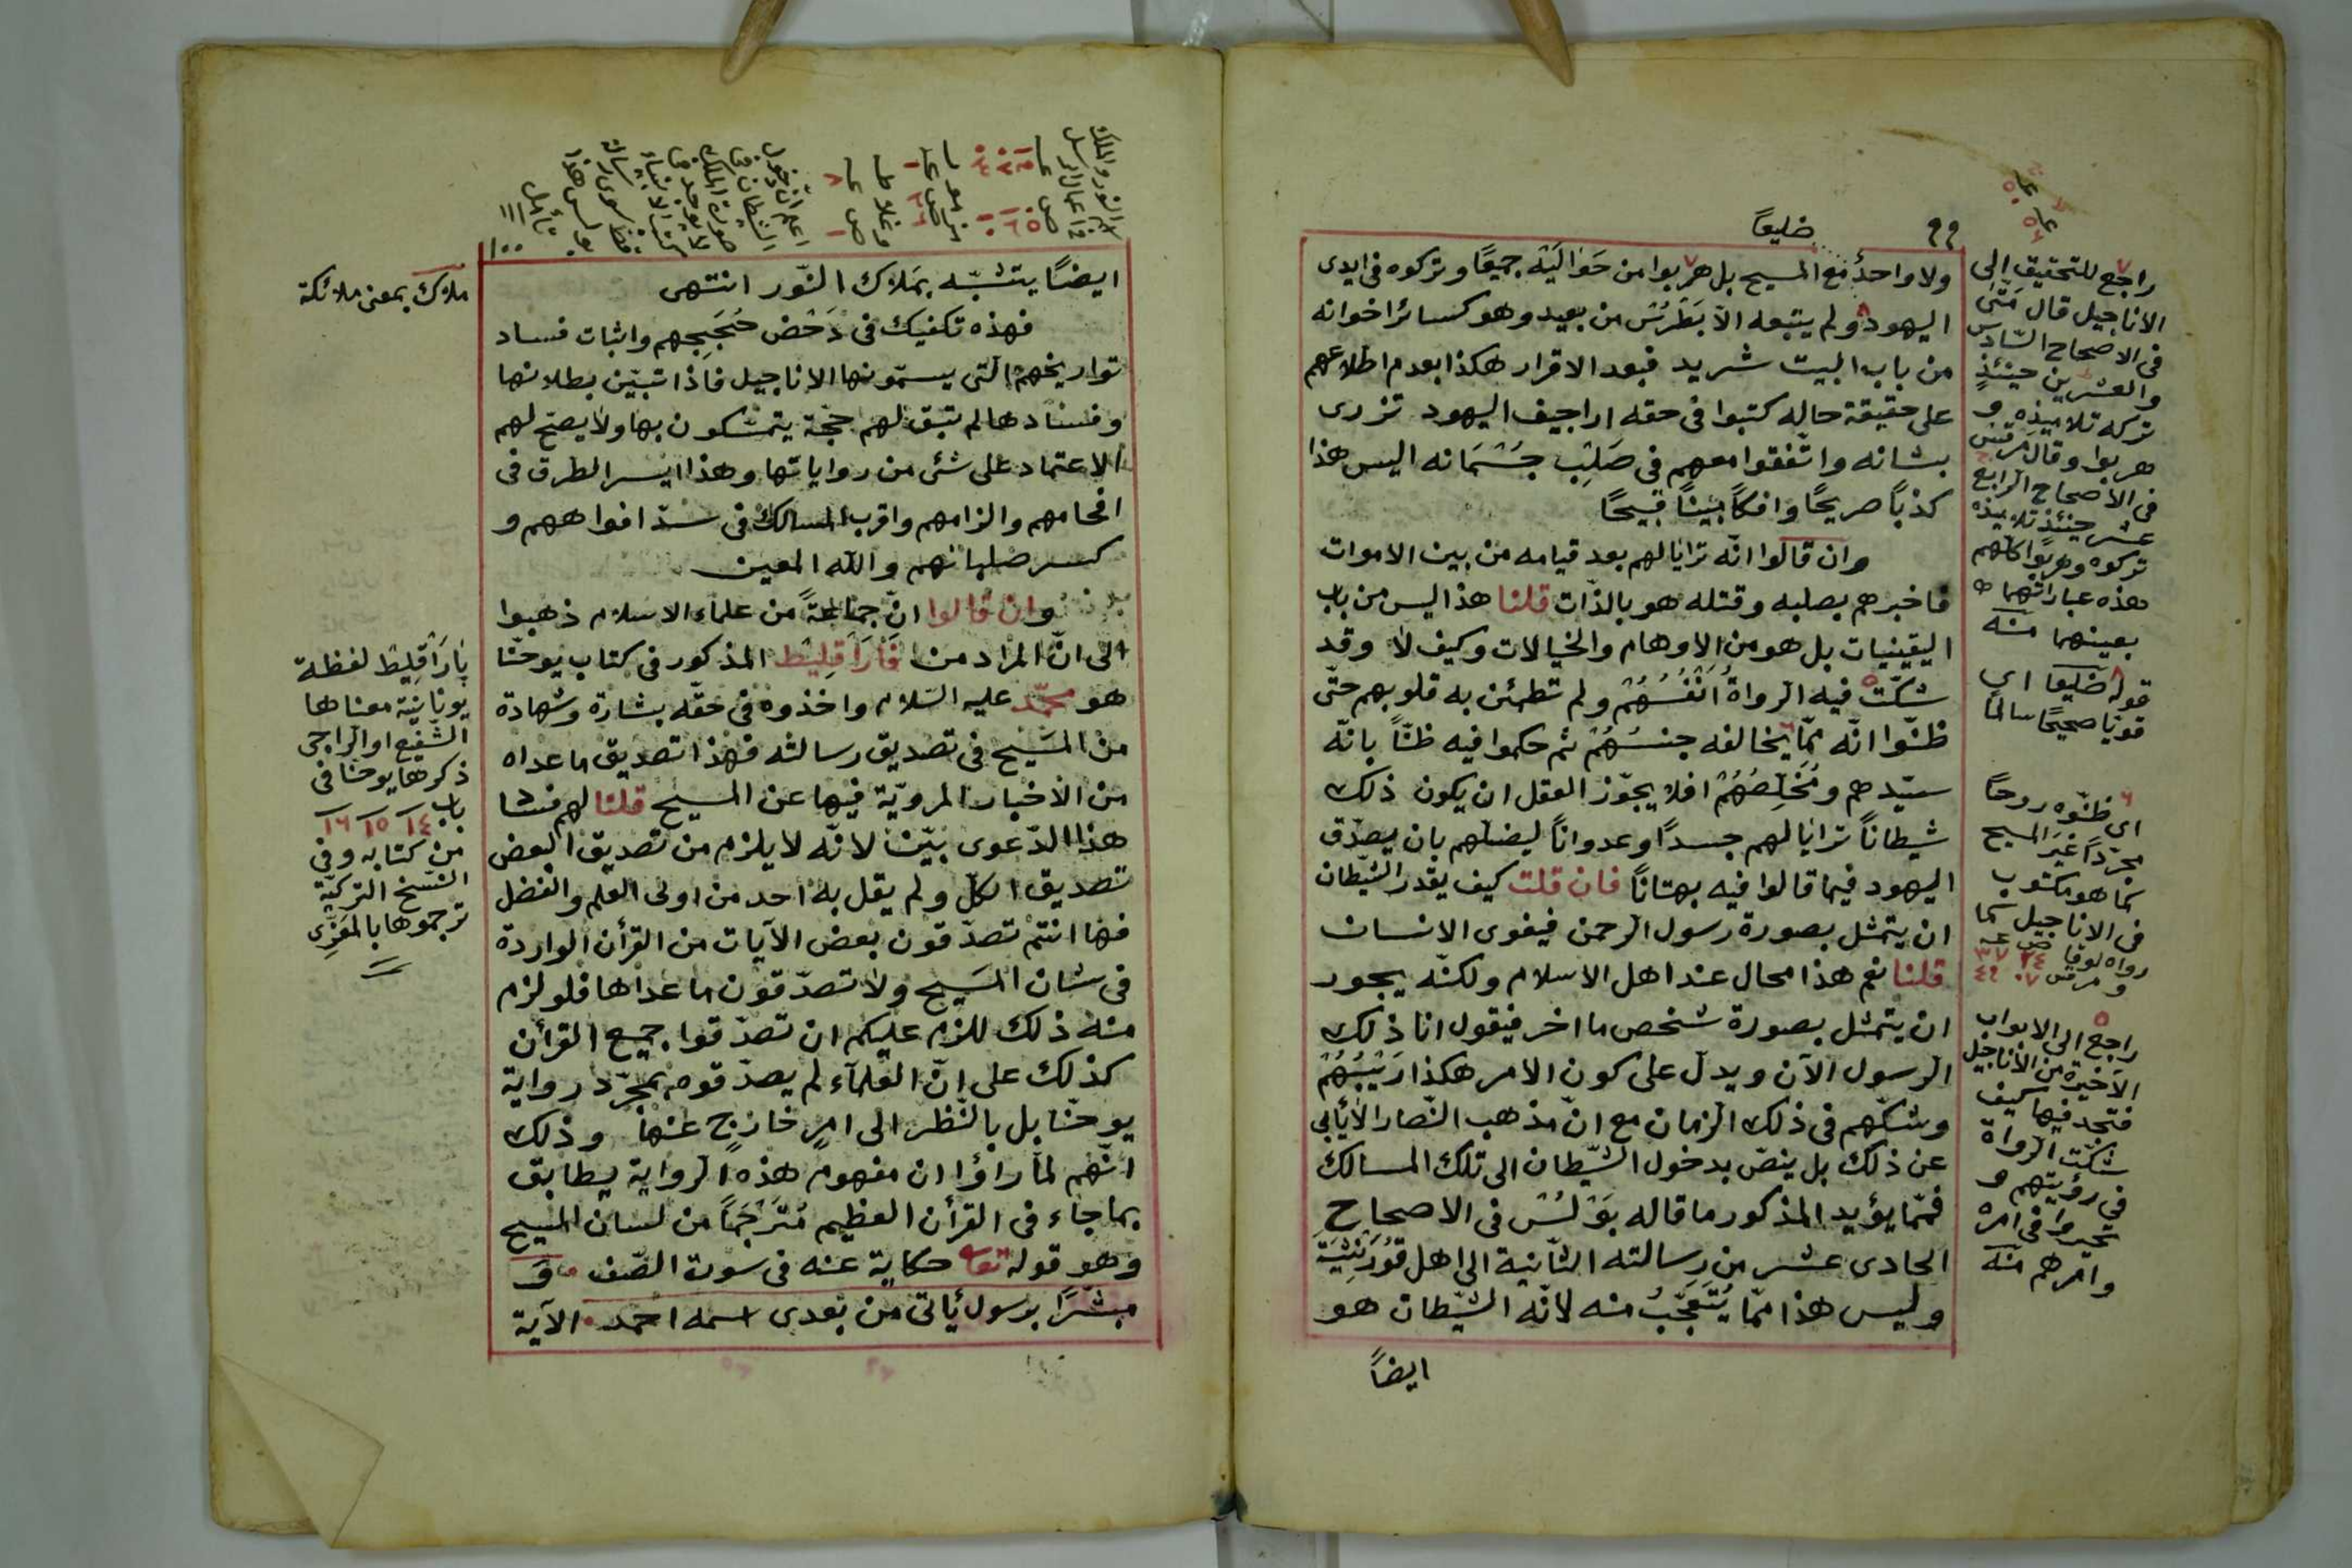 ٩٩
ضليعًا
ولا واحدٌ مع المسيح بل هربوا من حَوَالَيْه جميعًا وتركوه فى ايدى
اليهود ولم يتبعه الّا بَطْرُسْ من بعيد وهو كسائر اخوانه
من باب البيت شريد فبعد الاقرار هكذا بعدم اطلاعهم
على حقيقة حاله كتبوا فى حقه اراجيف اليهود تزرى
بشانه واتّفقوا معهم فى صَلْبِ جُسْمَانه اليس هذا
كذبًا صريحًا وافكًا بيّنًا قبيحًا
وان قالوا انّه ترايا لهم بعد قيامه من بين الاموات
فاخبرهم بصلبه وقتله هو بالذّات قلنا هذا ليس من باب
اليقينيات بل هو من الاوهام والخيالات وكيف لا وقد
شكّت فيه الرواةُ اَنْفُسُهُمْ ولم تطمئن به قلوبهم حتّى
ظنّوا انّه ممّا يخالفه جنسُهُمْ ثم حكموا فيه ظنًّا بانّه
سيّدهم ومُخَلِّصُهُمْ افلا يجوّز العقل ان يكون ذلك
شيطانًا ترايا لهم جسدًا وعدوانًا ليضلهم بان يصدّق
اليهود فيما قالوا فيه بهتانًا فان قلت كيف يقدر الشيطان
ان يتمثل بصورة رسول الرحمن فيغوى الانسان
قلنا نعم هذا محال عند اهل الاسلام ولكنّه يجوز
ان يتمثل بصورة شخص ما اخر فيقول انا ذلك
الرسول الآن ويدل على كون الامر هكذا رَيْبُهُمْ
وشكّهم فى ذلك الزمان مع انّ مذهب النّصارا لا يأبى
عن ذلك بل ينصّ بدخول الشّيطان الى تلك المسالك
فمّما يؤيد المذكور ما قاله بَوْلُسْ فى الاصحاح
الحادى عشر من رسالته الثّانية الى اهل قُورِنْثِيَّة
وليس هذا ممّا يُتَعَجَّبُ منه لانّه الشّيطان هو
ايضًا
راجع للتحقيق الى
الاناجيل قال مَتَّى
فى الاصحاح السّادس
والعشرين حينئذٍ
تركه تلاميذه و
هربوا وقال مرقس
فى الاصحاح الرابع
عشر حينئذ تلاميذه
تركوه وهربوا كلّهم
هذه عباراتهما
بعينهما منه
قوله ضليعا اى
قويًا صحيحًا سالمًا
٦
اى ظنّوه روحًا
مجرّدًا غير المسيح
كما هو مكتوب
فى الاناجيل كما
رواه لوقا ص ٢٤ عـ ٣٧
٥
راجع الى الابواب
الاخيرة من الاناجيل
فتجد فيها كيف
شكّت الرواة
فى رؤيتهم و
تحيروا فى امره
وامرهم منه
١٠٠
اعلم انّ دخول
الشيطان فى
صورة الملك
لا يوجد فى
كتب الانبياء
تأمل
ايضًا يتشبّه بمَلَاك النّور انتهى
فهذه تكفيك فى دَحْض حُجَجِهم واثبات فساد
تواريخهم الّتى يسمّونها الاناجيل فاذا تبيّن بطلانها
وفسادها لم تبق لهم حجّة يتمسّكون بها ولا يصحّ لهم
الاعتماد على شئ من رواياتها وهذا ايسر الطرق فى
افحامهم والزامهم واقرب المسالك فى سدّ افواههم و
كسر صلبانهم والله المعين
وان قالوا انّ جماعةً من علماء الاسلام ذهبوا
الى انّ المراد من فَارَاقِلِيط المذكور فى كتاب يوحنّا
هو محمّد عليه السّلام واخذوه فى حقّه بشارة وشهادة
من المسيح فى تصديق رسالته فهذا تصديق ما عداه
من الاخبار المرويّة فيها عن المسيح قلنا لهم فسا
هذا الدّعوى بيّن لانّه لا يلزم من تصديق البعض
تصديق الكلّ ولم يقل به احد من اولى العلم والفضل
فها انتم تصدّقون بعض الآيات من القرأن الواردة
فى شان المسيح ولا تصدّقون ما عداها فلو لزم
منه ذلك للزم عليكم ان تصدّقوا جميع القرأن
كذلك على انّ العلمآء لم يصدّقوه بمجرّد رواية
يوحنّا بل بالنّظر الى امرٍ خارجٍ عنها وذلك
انّهم لمّا راؤا ان مفهوم هذه الرواية يطابق
بما جاء فى القرأن العظيم مُتَرْجَمًا من لسان المسيح
وهو قوله تعا حكاية عنه فى سورت الصّف وَ
مبشّرًا برسول يأتى من بعدى اسمه احمد الآية
ملاك بمعنى ملائكة
پَارَاقِلِيط لفظة
يونانيّة معناها
الشّفيع او الراجى
ذكرها يوحنّا فى
باب ١٤ ١٥ ١٦
من كتابه وفى
النّسخ التركيّة
ترجموها بالمُعَزِّى